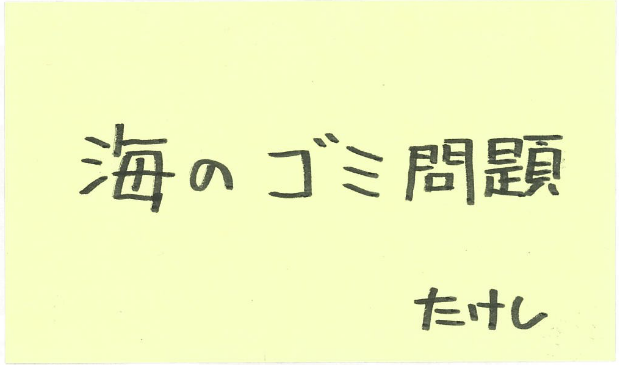 海のゴミ問題
たけし